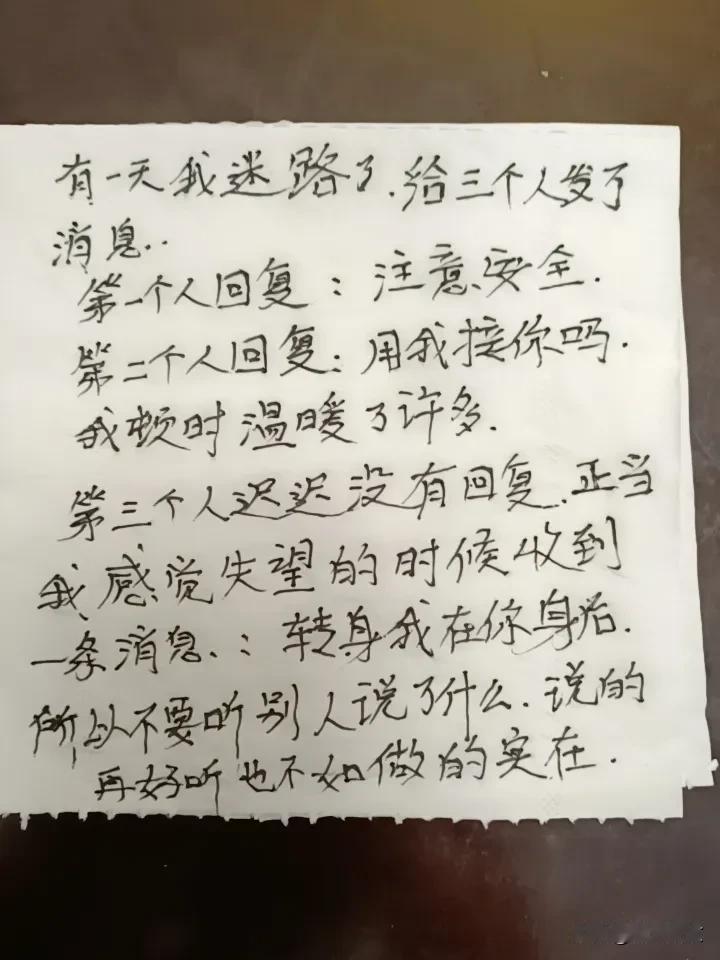 有一天我迷路了.给三个人发了
消息..
第一个人回复：注意安全.
第二个人回复：用我接你吗.
我顿时温暖了许多.
第三个人迟迟没有回复.正当
我感觉失望的时候收到
一条消息.：转身我在你身后.
所以不要听别人说了什么.说的
再好听也不如做的实在.